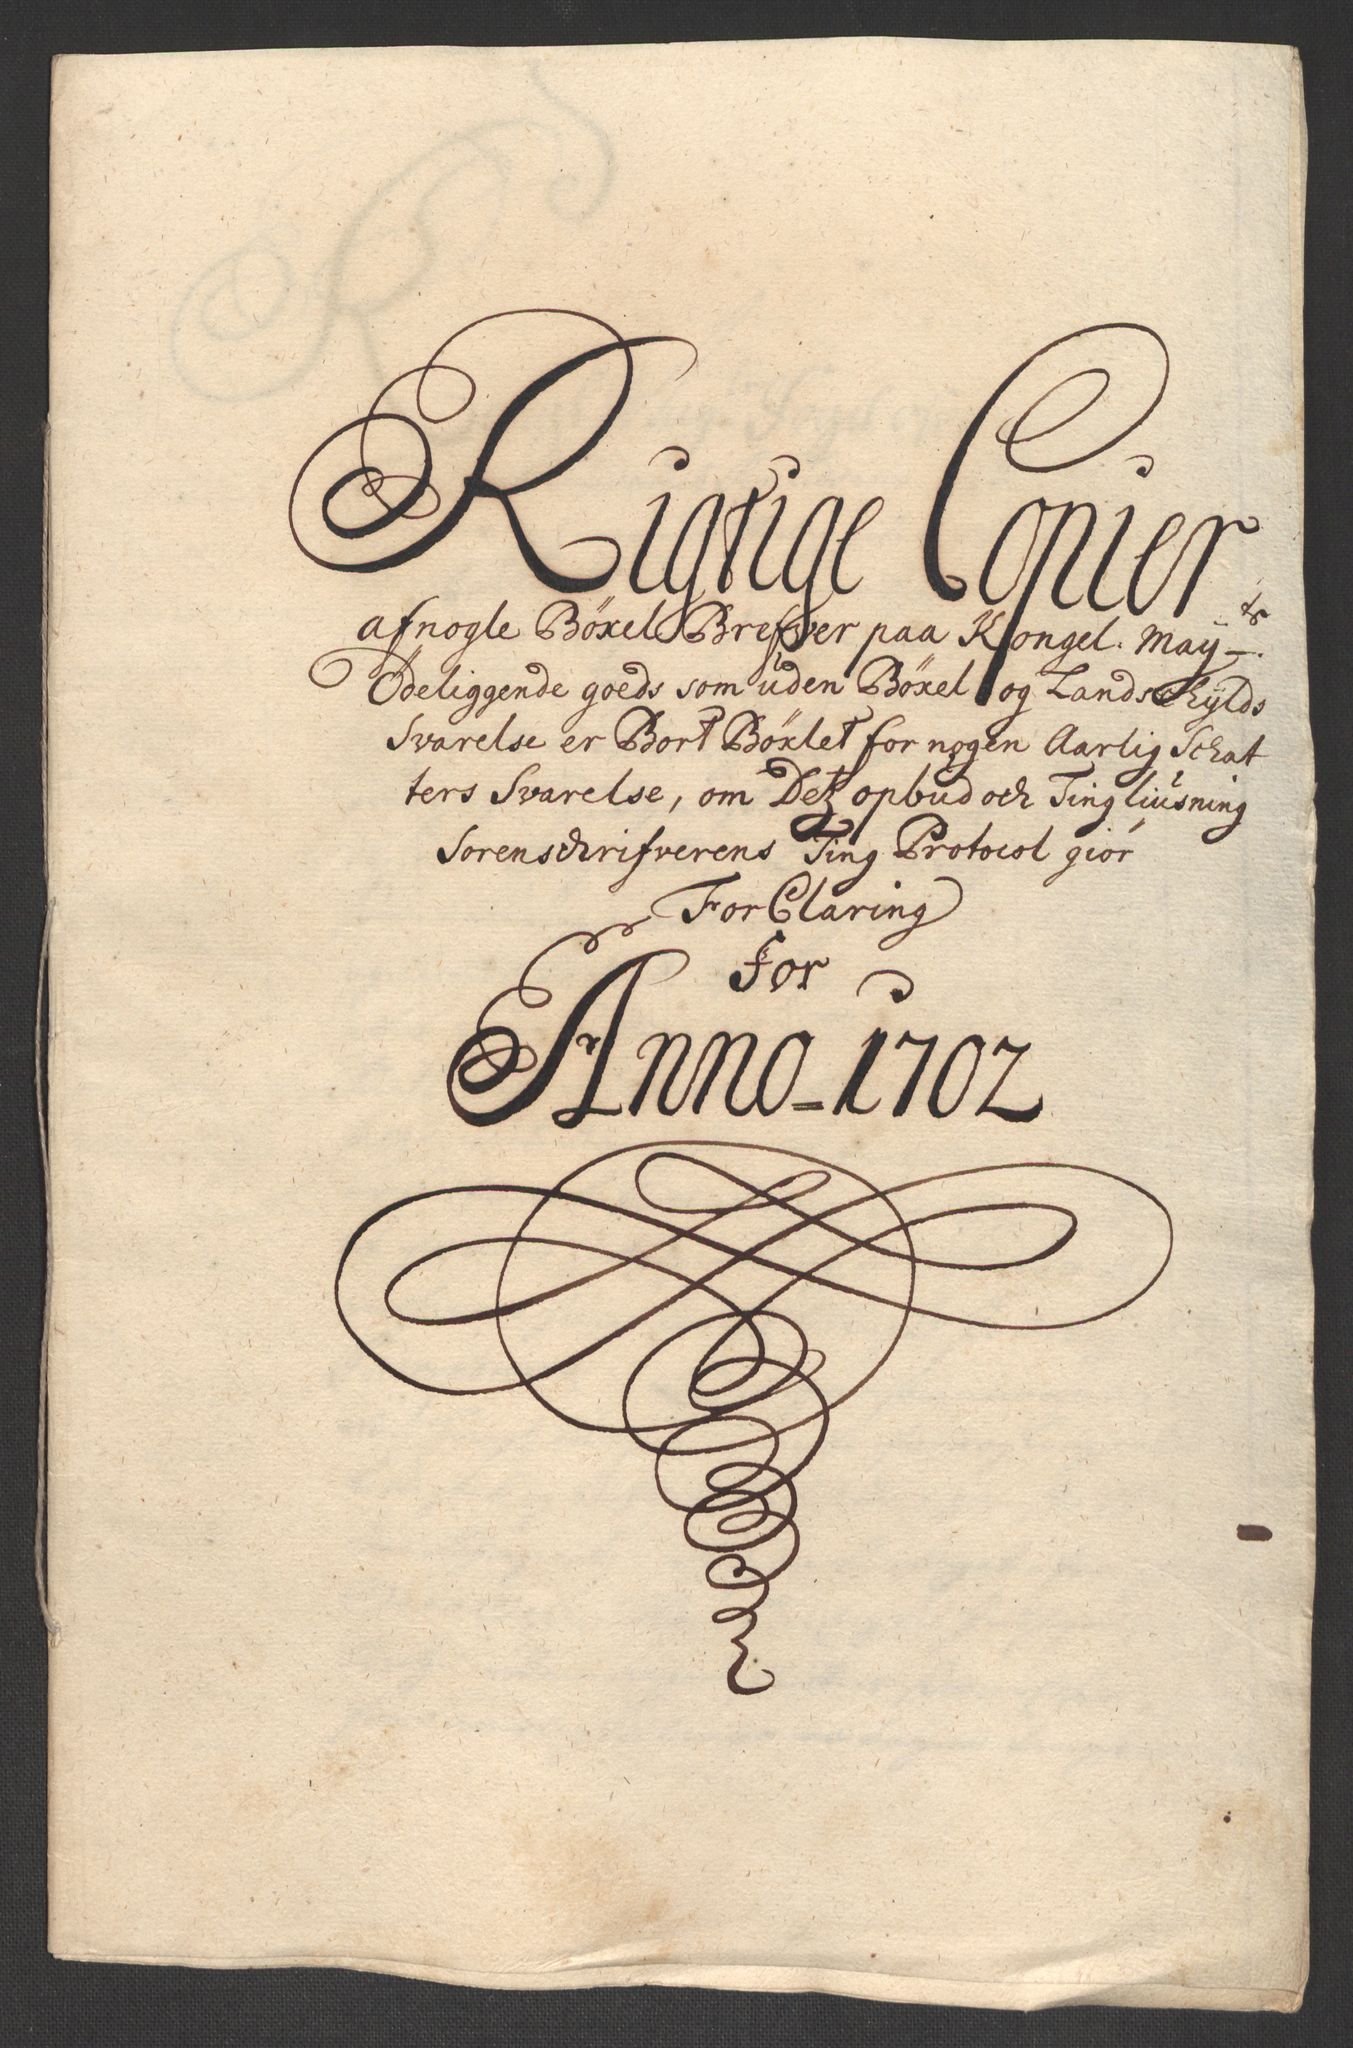 Rigtige Copier
af nogle Böxel Brefwer paa Kongel. Maÿts.
Ödeliggende goeds som uden Böxel og Landschÿlds
Svarelse er Bort Böxlet for nogen Aarlig Schat
ters Svarelse, om Detz opbud och Tingliusning
Sorenschrifverens Ting Protocol giör
For Claring
for
Anno 1702